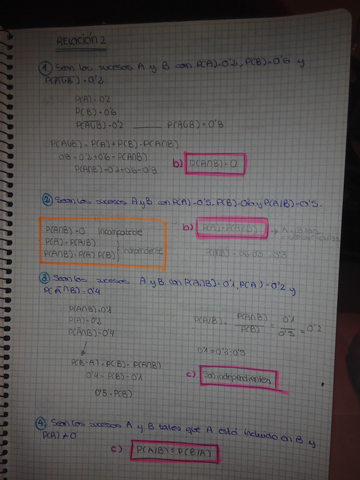 RELACIÓN 2
① Sean los sucesos A y B con P(A)=0'2, P(B)=0'6 y
P(A̅∪B̅)=0'2
P(A)=0'2
P(B)=0'6
P(A∪B)=0'8
P(A∪B)=P(A)+P(B)-P(A∩B)
0'8=0'2+0'6-P(A∩B)
P(A∩B)=0'2+0'6-0'8
b) P(A∩B)=0
② Sean los sucesos A y B con P(A)=0'5, P(B)=0'6 y P(A/B)=0'5.
P(A∩B)=0 Incompatible
P(A)=P(A/B)
P(A∩B)=P(A)·P(B) Independiente
b) P(A)=P(A/B)
③ Sean los sucesos A y B con P(A∩B)=0'1, P(A)=0'2 y
P(A̅∩B)=0'4
P(A∩B)=0'1
P(A)=0'2
P(A̅∩B)=0'4
P(B-A)=P(B)-P(A∩B)
0'4=P(B)-0'1
0'5=P(B)
P(A/B)= P(A∩B)/P(B) = 0'1/0'5 = 0'2
c) Son independientes
④ Sean los sucesos A y B tales que A está incluido en B y
P(A)≠0
c) P(A/B)≤P(B/A)